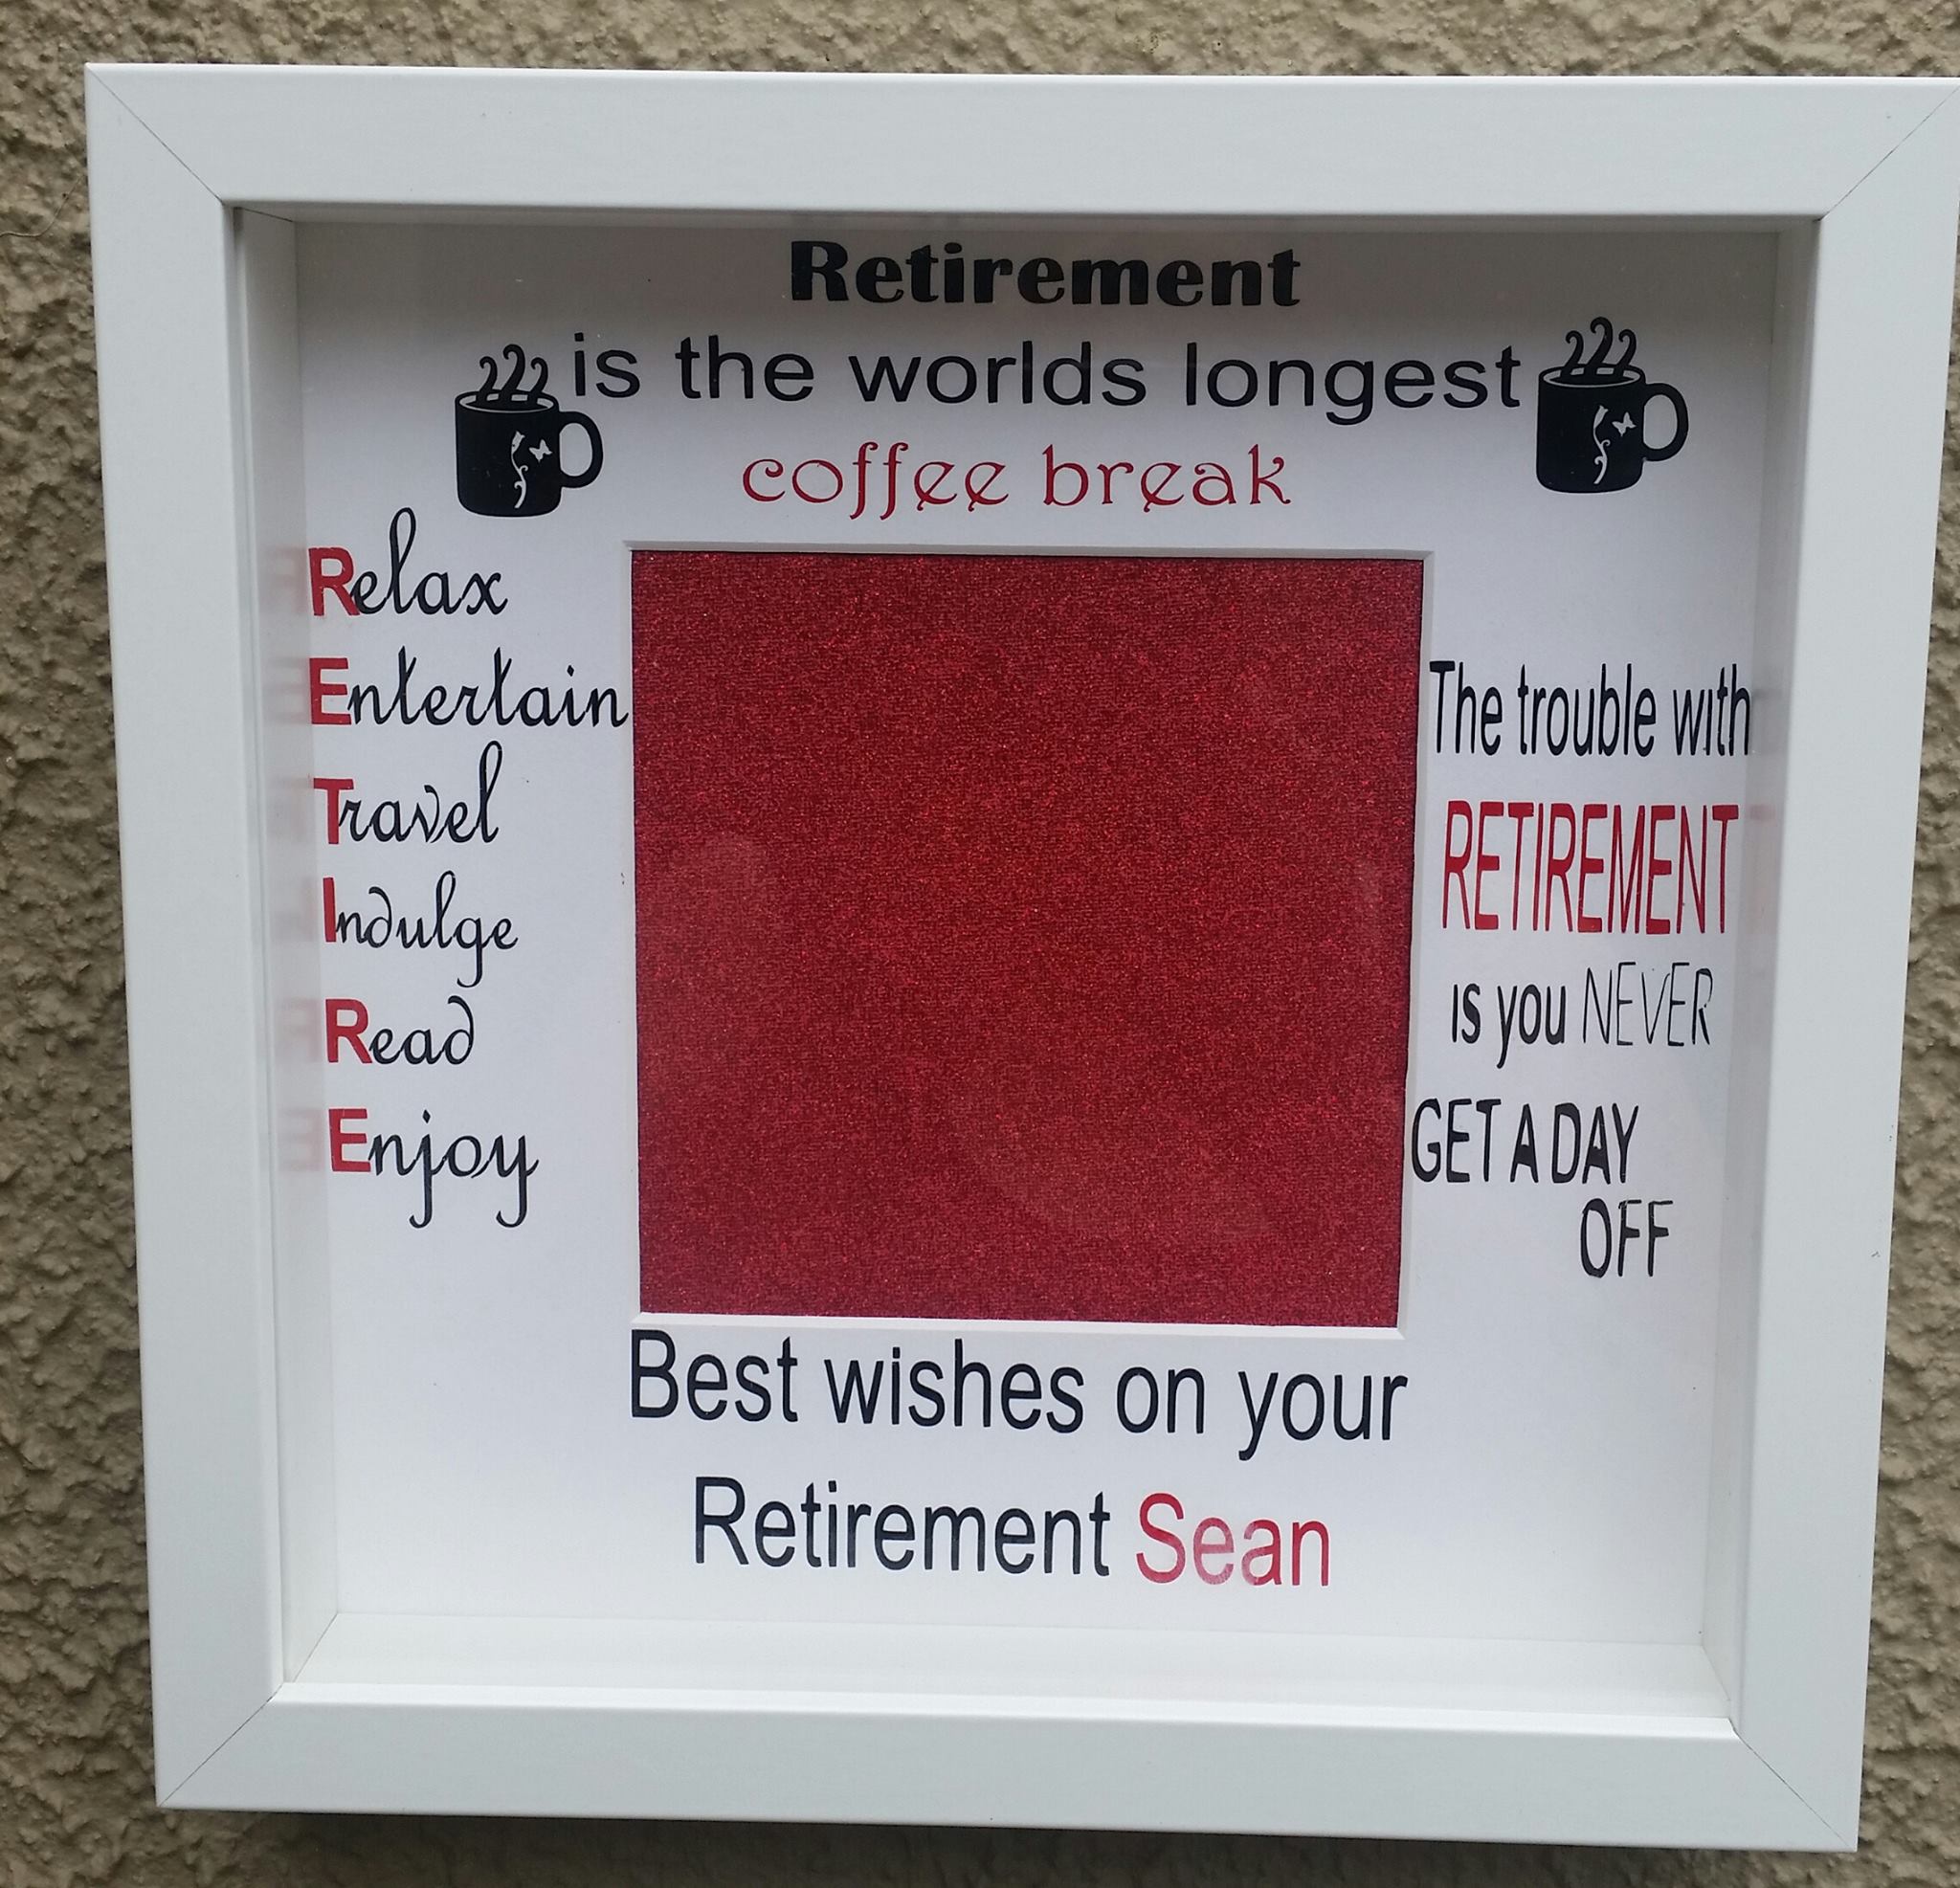 Retirement
is the worlds longest
coffee break
Relax
Entertain
Travel
Indulge
Read
Enjoy
The trouble with
RETIREMENT
is you NEVER
GET A DAY
OFF
Best wishes on your
Retirement Sean